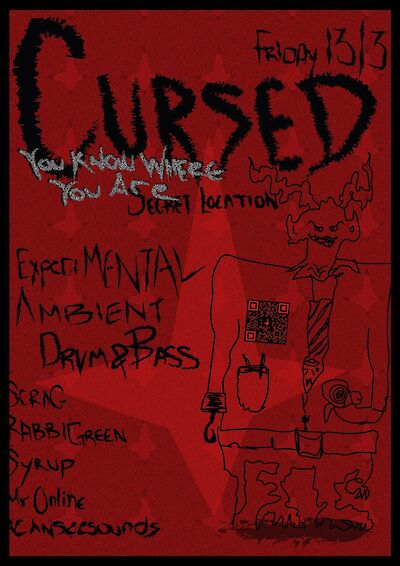 Friday 13/3
CURSED
You Know Where
You Are
Secret Location
ExperiMENTAL
AMBIENT
DRUM&BASS
SCRAG
RABBIGREEN
Syrup
Mr Online